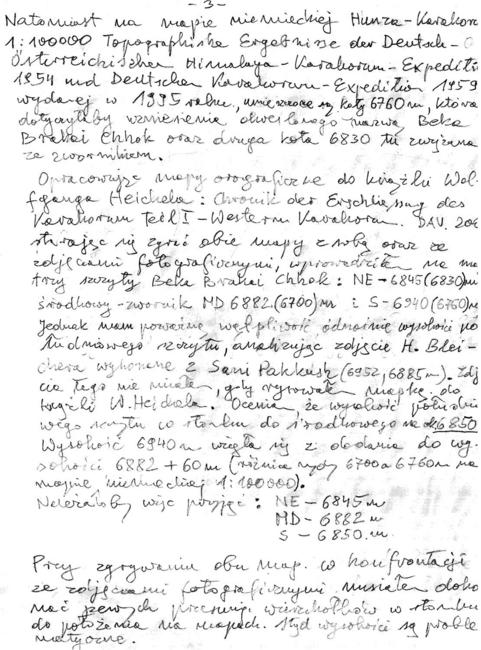 - 3 -
Natomiast na mapie niemieckiej Hunza - Karakor
1:100000 Topographishe Ergebnisse der Deutsch - Ö
Österreichischen Himalaya - Karakorum - Expediti
1954 und Deutschen Karakorum - Expedition 1959
wydanej w 1995 roku, umieszczone są koty 6760 m, która
dotyczyłaby wzniesienia określonego nazwą Beka
Brakai Chhok oraz druga kota 6830 też związana
ze zwornikiem.
Opracowując mapy orograficzne do książki Wol-
fganga Heichela: Chronik der Erschliessung des
Karakorum Teil I - Western Karakorum. DAV. 200
starając się zgrać obie mapy z sobą oraz ze
zdjęciami fotograficznymi, wprowadziłem na ma
trzy szczyty Beka Brakai Chhok: NE - 6845 (6830) m
środkowy - zwornik MD 6882 (6700) m i S - 6940 (6760) m
Jednak mam poważne wątpliwość odnośnie wysokości po
łudniowego szczytu, analizując zdjęcie H. Blei-
chera wykonane z Sani Pakkush (6952, 6885 m). Zdj
cia tego nie miałem, gdy rysowałem mapkę do
książki W. Heichela. Ocenia, że wysokość południo
wego szczytu w stosunku do środkowego na 6850
Wysokość 6940 m wzięła się z dodania do wy-
sokości 6882 + 60 m (różnica między 6700 a 6760 m na
mapie niemieckiej 1:100000).
Należałoby więc przyjąć: NE - 6845 m
MD - 6882 m
S - 6850 m.
Przy zgrywaniu obu map w konfrontacji
ze zdjęciami fotograficznymi, musiałem doko
nać pewnych przesunięć wierzchołków w stosunku
do położenia na mapach. Stąd wysokości są proble
matyczne.